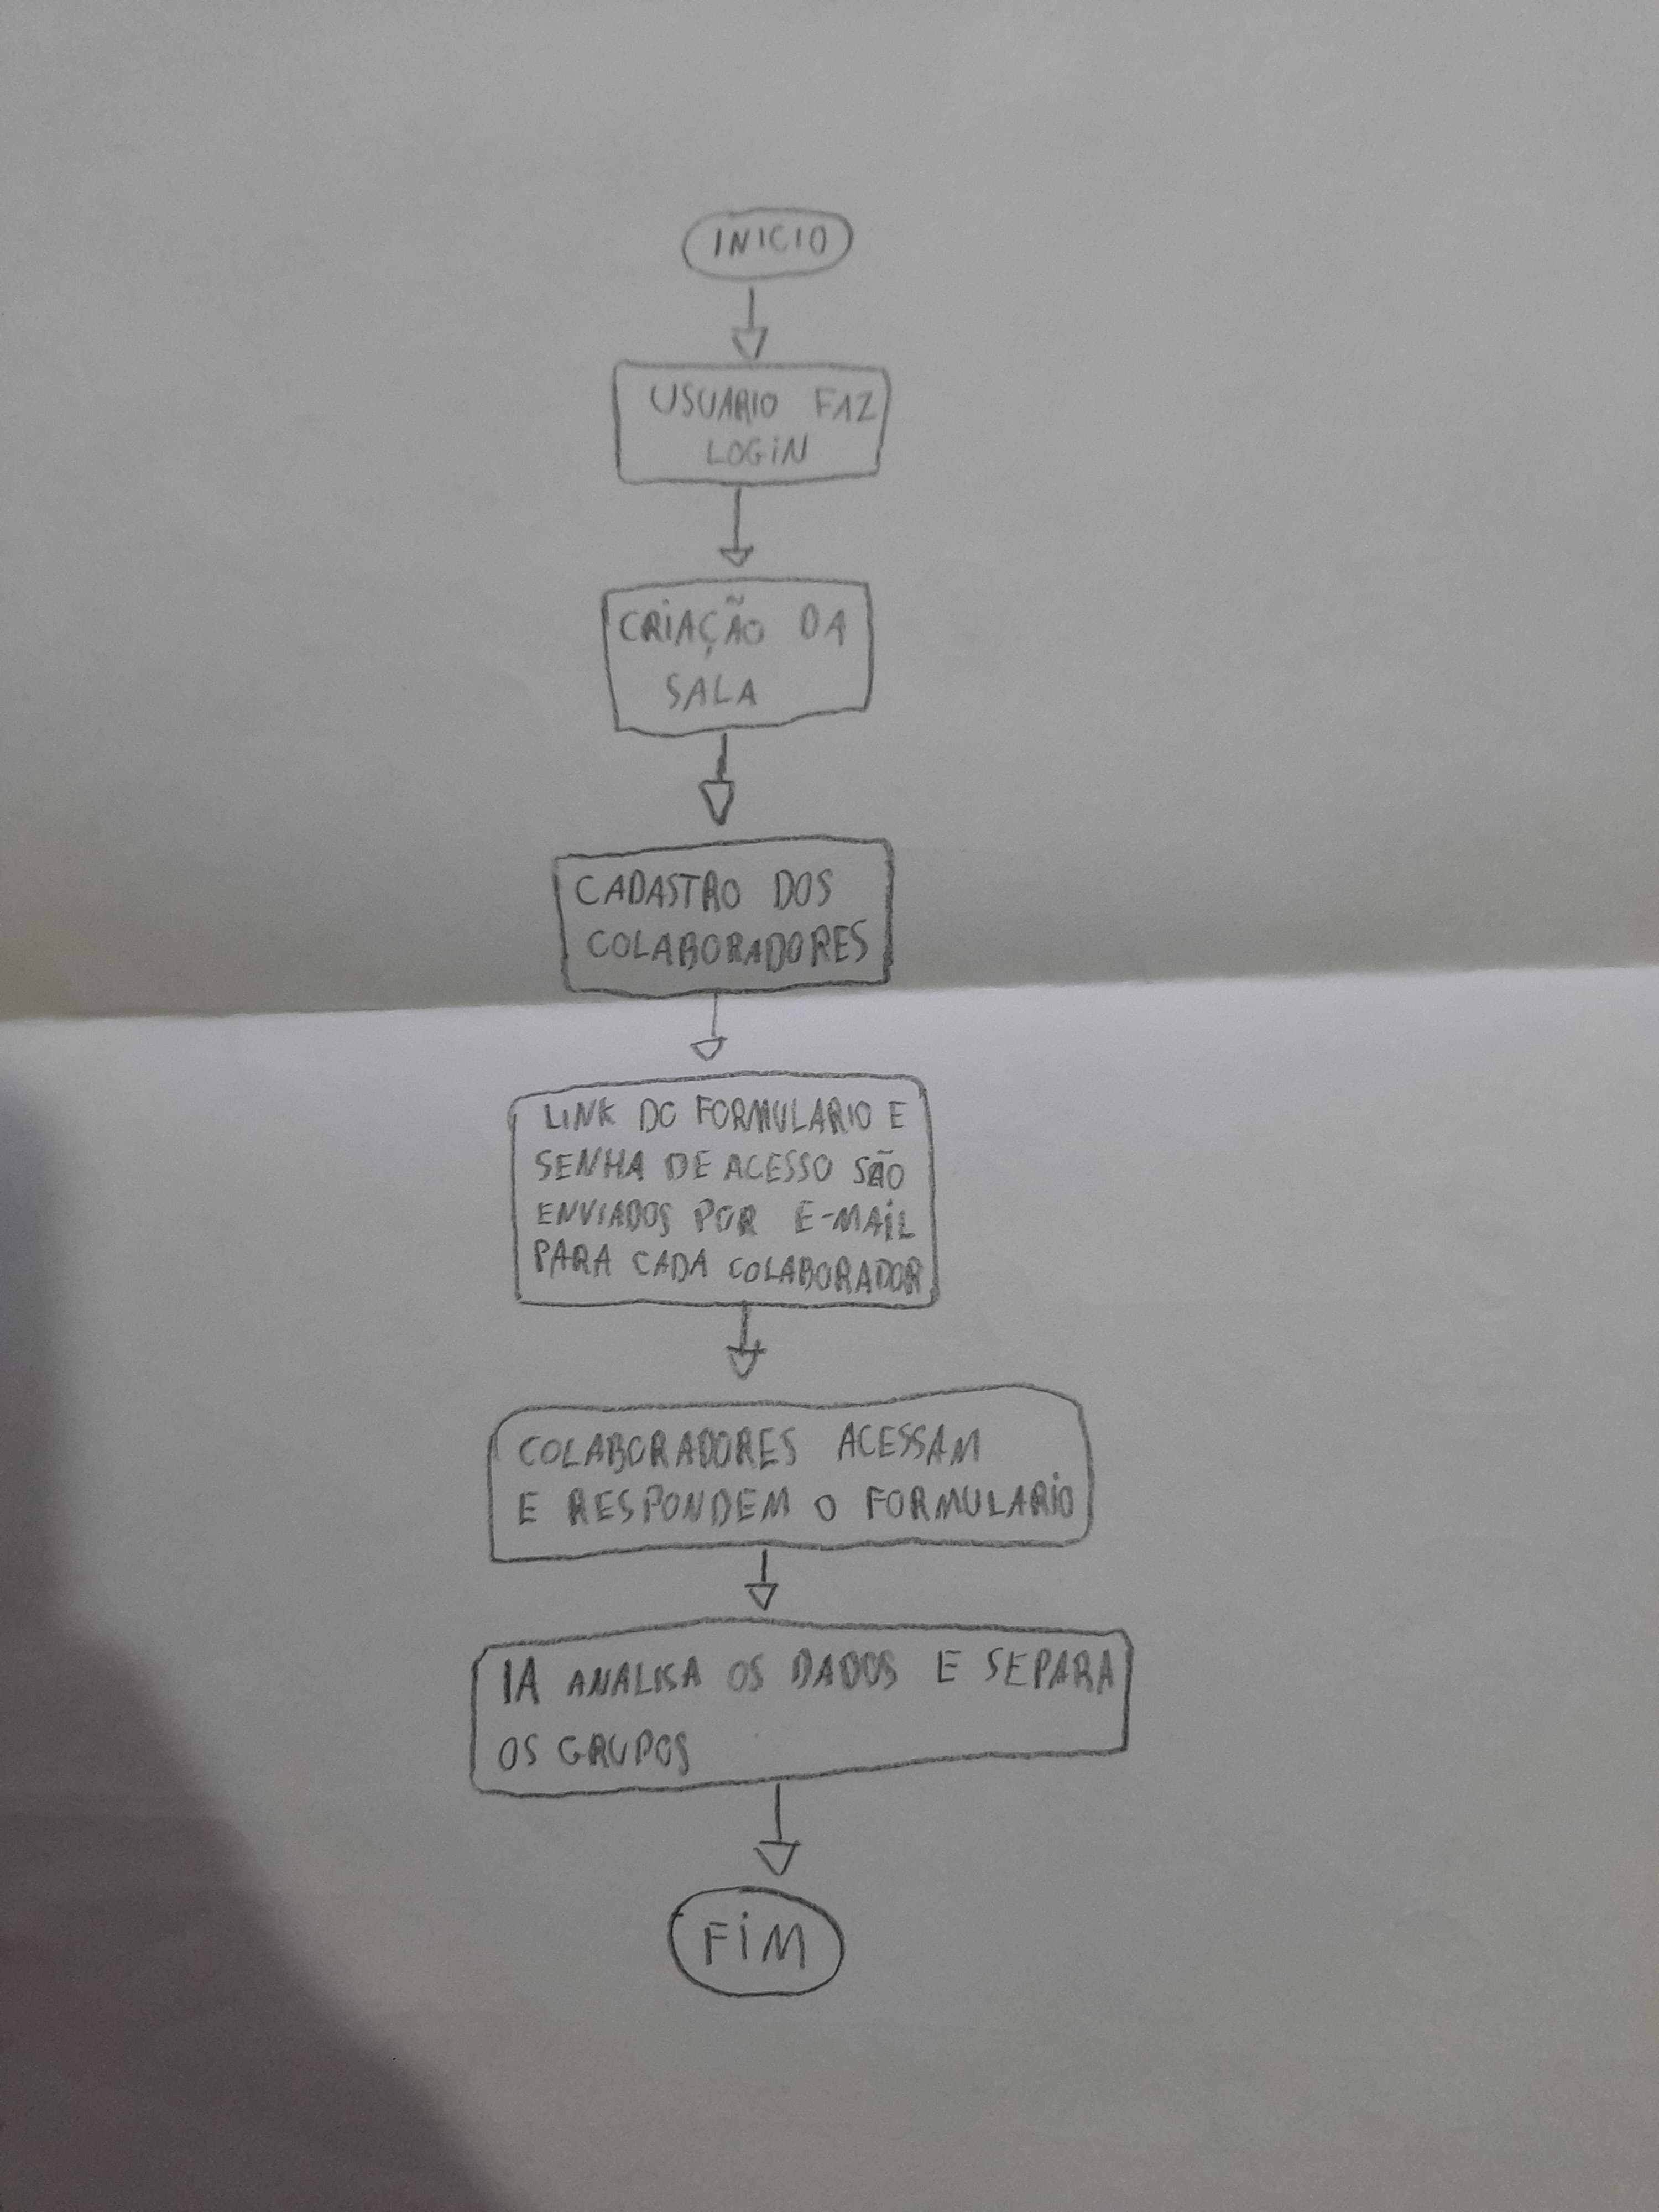 INICIO
USUARIO FAZ
LOGIN
CRIAÇÃO DA
SALA
CADASTRO DOS
COLABORADORES
LINK DO FORMULARIO E
SENHA DE ACESSO SÃO
ENVIADOS POR E-MAIL
PARA CADA COLABORADOR
COLABORADORES ACESSAM
E RESPONDEM O FORMULARIO
IA ANALISA OS DADOS E SEPARA
OS GRUPOS
FIM